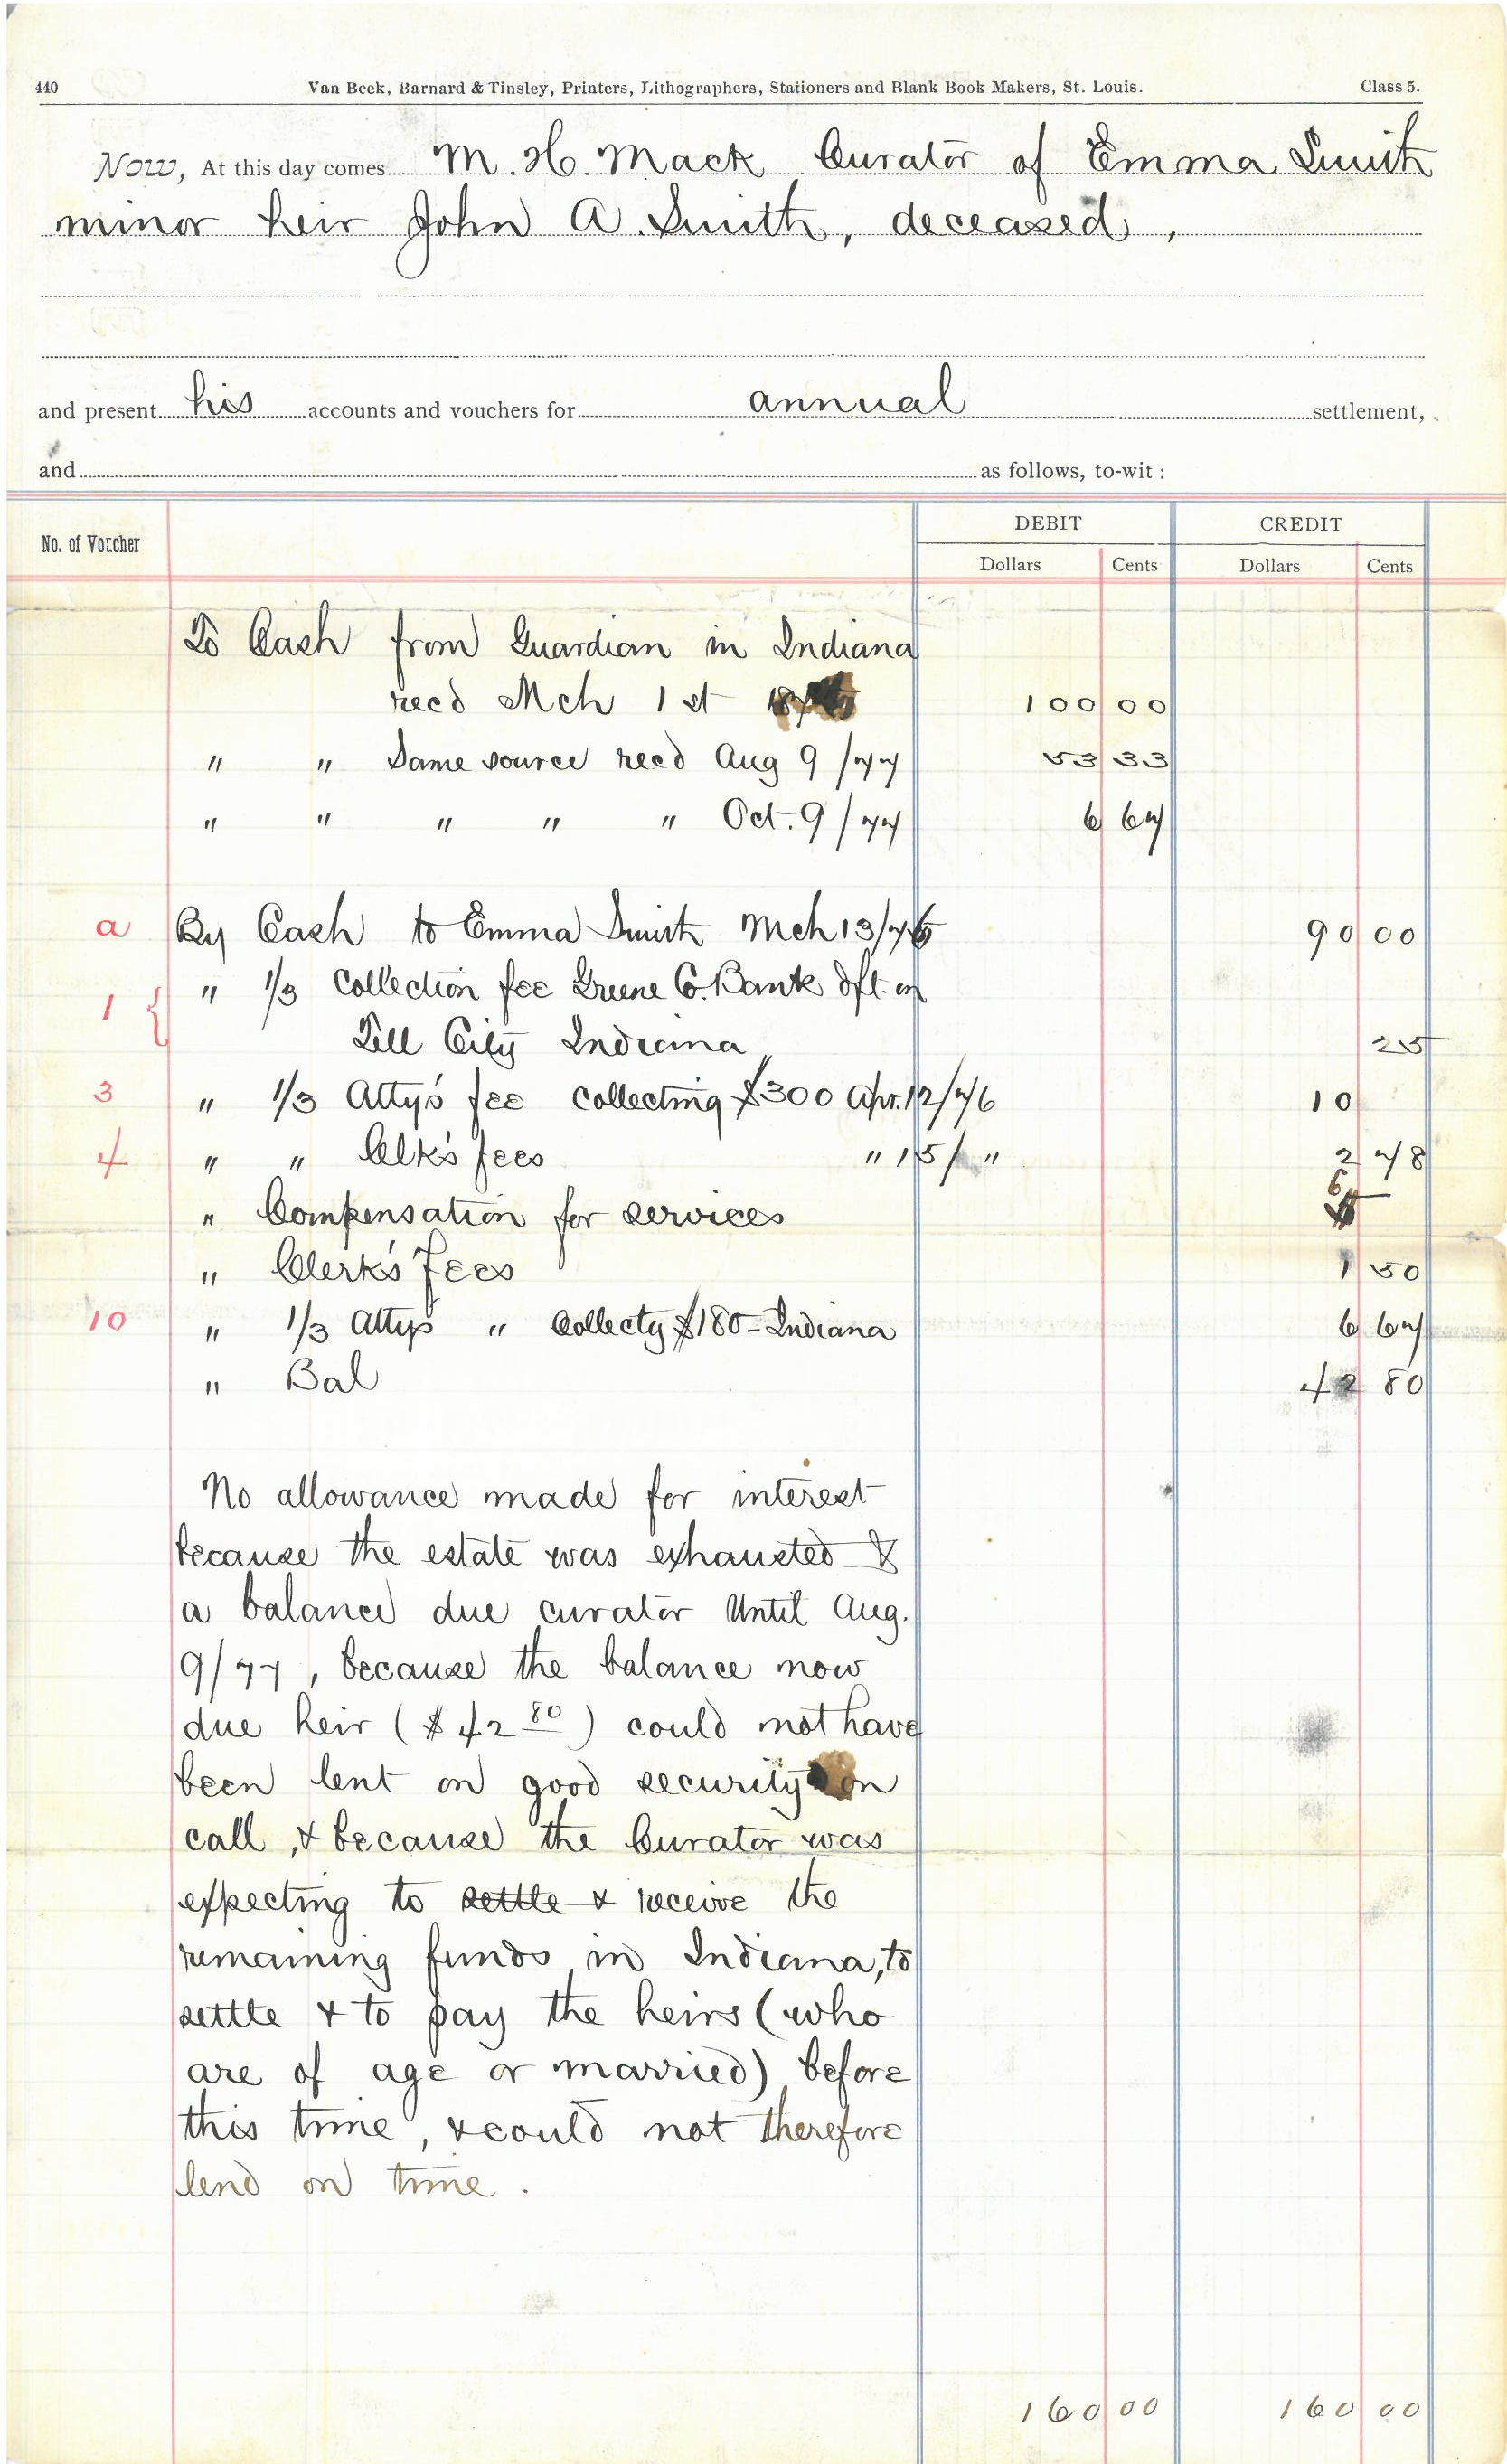 440 Van Beek, Barnard & Tinsley, Printers, Lithographers, Stationers and Blank Book Makers, St. Louis. Class 5.
Now, At this day comes M. H. Mack Curator of Emma Smith
minor heir John A. Smith, deceased,
and present his accounts and vouchers for annual settlement,
and as follows, to-wit:
No. of Voucher DEBIT CREDIT
Dollars Cents Dollars Cents
To Cash from Guardian in Indiana
recd Mch 1st 100 00
" " Same source recd Aug 9/77 53 33
" " " " " Oct. 9/77 6 67
a By Cash to Emma Smith Mch 13/76 90 00
1 " 1/3 Collection fee Greene Co. Bank dft. on
Tell City Indiana 25
3 " 1/3 Atty's fee collecting $300 Apr. 12/76 10
4 " " Clk's fees " 15/ " 2 78
" Compensation for services 6
" Clerk's Fees 1 50
10 " 1/3 Attys " Collectg $180 - Indiana 6 67
" Bal 42 80
No allowance made for interest
because the estate was exhausted &
a balance due curator until Aug.
9/77, because the balance now
due heir ($42 80) could not have
been lent on good security on
call, & because the Curator was
expecting to settle & receive the
remaining funds in Indiana, to
settle & to pay the heirs (who
are of age or married) before
this time, & could not therefore
lend on time.
160 00 160 00